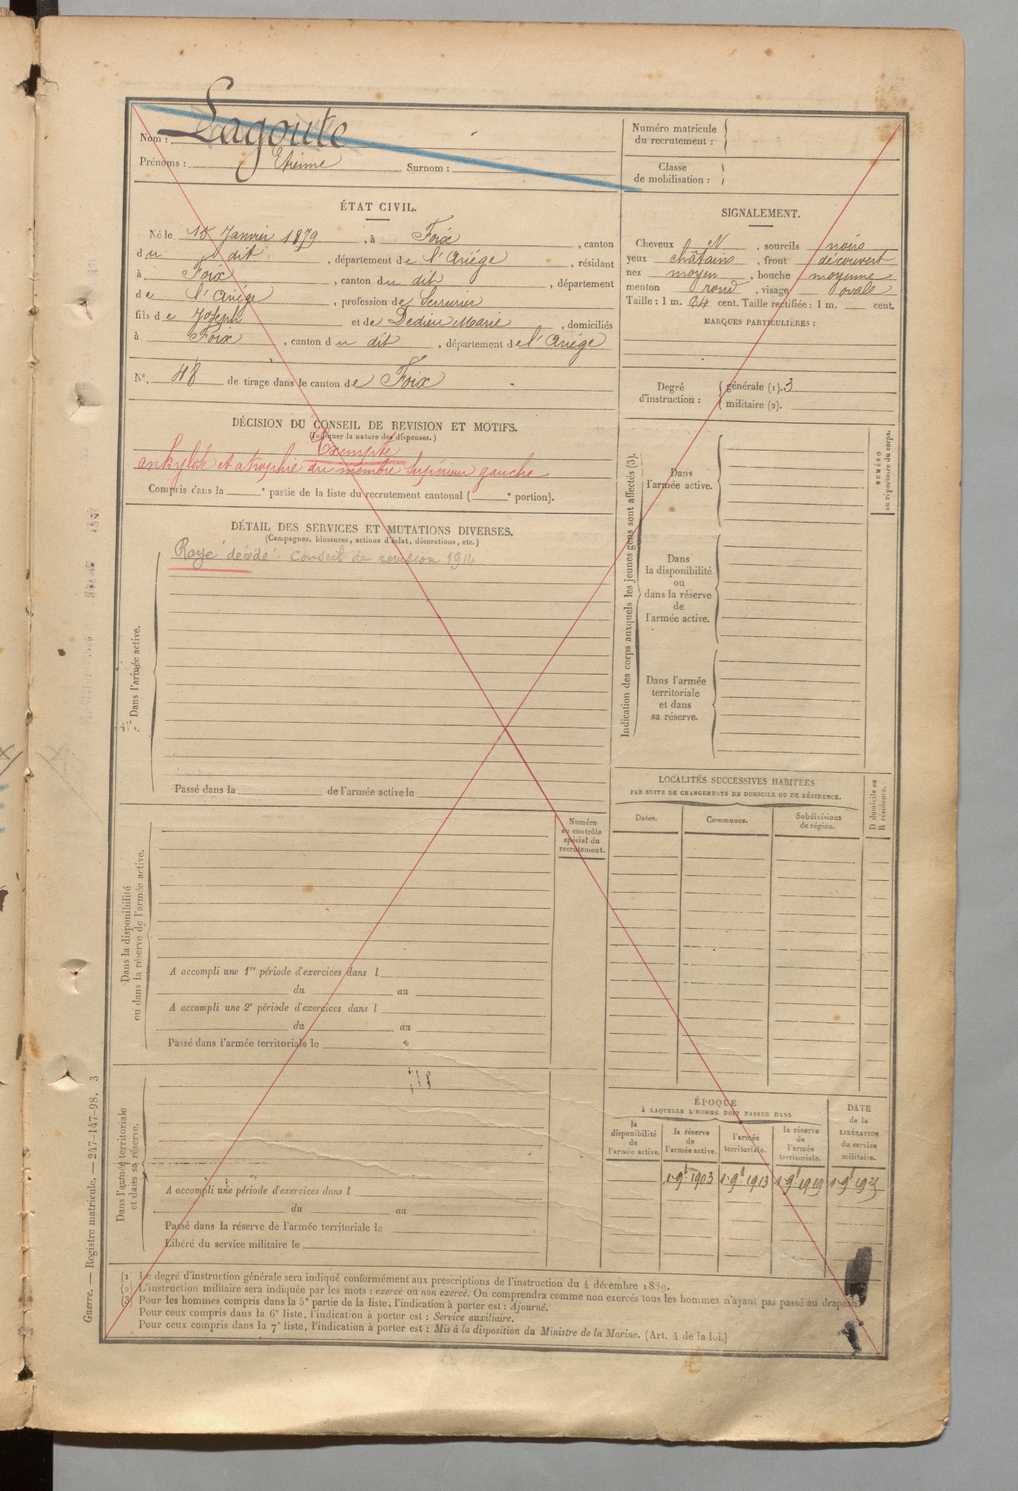 Nom : Lagoute
Prénoms : Etienne Surnom :
Numéro matricule
du recrutement :
Classe
de mobilisation :
ÉTAT CIVIL.
Né le 15 Janvier 1879, à Foix, canton
du dit, département de l'Ariége, résidant
à Foix, canton du dit, département
de l'Ariége, profession de Serrurier
fils de Joseph et de Dedieu Marie, domiciliés
à Foix, canton du dit, département de l'Ariége
N° 48 de tirage dans le canton de Foix
SIGNALEMENT.
Cheveux N, sourcils noirs
yeux châtains, front découvert
nez moyen, bouche moyenne
menton rond, visage ovale
Taille : 1 m. 64 cent. Taille rectifiée : 1 m. cent.
MARQUES PARTICULIÈRES :
Degré
d'instruction :
générale (1). 3
militaire (2).
DÉCISION DU CONSEIL DE REVISION ET MOTIFS.
(Indiquer la nature des dispenses.)
Exempté
ankylose et atrophie du membre supérieur gauche
Compris dans la e partie de la liste du recrutement cantonal ( e portion).
DÉTAIL DES SERVICES ET MUTATIONS DIVERSES.
(Campagnes, blessures, actions d'éclat, décorations, etc.)
Rayé "décédé" Conseil de revision 1914
Dans l'armée active.
Passé dans la de l'armée active le
Indication des corps auxquels les jeunes gens sont affectés (3).
Dans
l'armée active.
Dans
la disponibilité
ou
dans la réserve
de
l'armée active.
Dans l'armée
territoriale
et dans
sa réserve.
NUMÉRO
au répertoire du corps.
LOCALITÉS SUCCESSIVES HABITÉES
PAR SUITE DE CHANGEMENTS DE DOMICILE OU DE RÉSIDENCE.
Dates.
Communes.
Subdivisions
de région.
D domicile ou
R résidence.
Numéro
au contrôle
spécial du
recrutement.
Dans la disponibilité
ou dans la réserve de l'armée active.
A accompli une 1re période d'exercices dans l
du au
A accompli une 2e période d'exercices dans l
du au
Passé dans l'armée territoriale le
Dans l'armée territoriale
et dans sa réserve.
A accompli une période d'exercices dans l
du au
Passé dans la réserve de l'armée territoriale le
Libéré du service militaire le
ÉPOQUE
À LAQUELLE L'HOMME DOIT PASSER DANS
la
disponibilité
de
l'armée active.
la réserve
de
l'armée active.
l'armée
territoriale.
la réserve
de
l'armée
territoriale.
DATE
de la
LIBÉRATION
du service
militaire.
1er 9bre 1903 1er 9bre 1913 1er 9bre 1919
Guerre. — Registre matricule. — 247-147-98. 3
(1) Le degré d'instruction générale sera indiqué conformément aux prescriptions de l'instruction du 4 décembre 1889.
(2) L'instruction militaire sera indiquée par les mots : exercé ou non exercé. On comprendra comme non exercés tous les hommes n'ayant pas passé au drapeau.
(3) Pour les hommes compris dans la 5e partie de la liste, l'indication à porter est : Ajourné.
Pour ceux compris dans la 6e liste, l'indication à porter est : Service auxiliaire.
Pour ceux compris dans la 7e liste, l'indication à porter est : Mis à la disposition du Ministre de la Marine. (Art. 4 de la loi.)